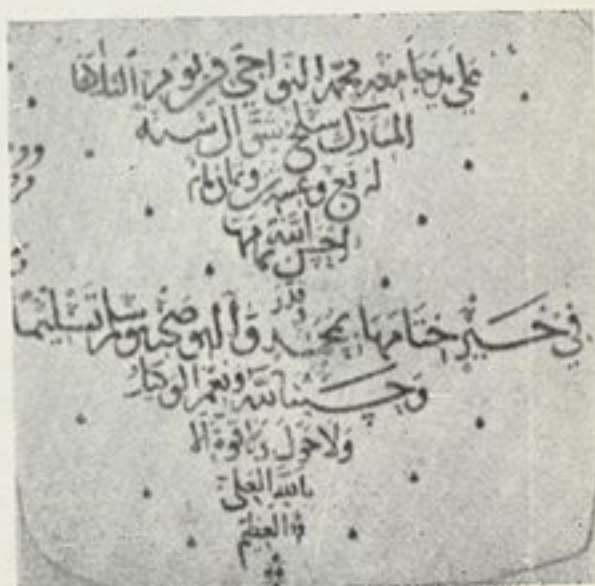 على يد جامعه محمد النواجي في يوم الثلاثا
المبارك سلخ شوال سنة
اربع وعشرين وثمان مايه
احسن الله تمامها
وقدر
في خير ختامها بمحمد وآله وصحبه وسلم تسليما
وحسبنا الله ونعم الوكيل
ولا حول ولا قوة الا
بالله العلي
العظيم